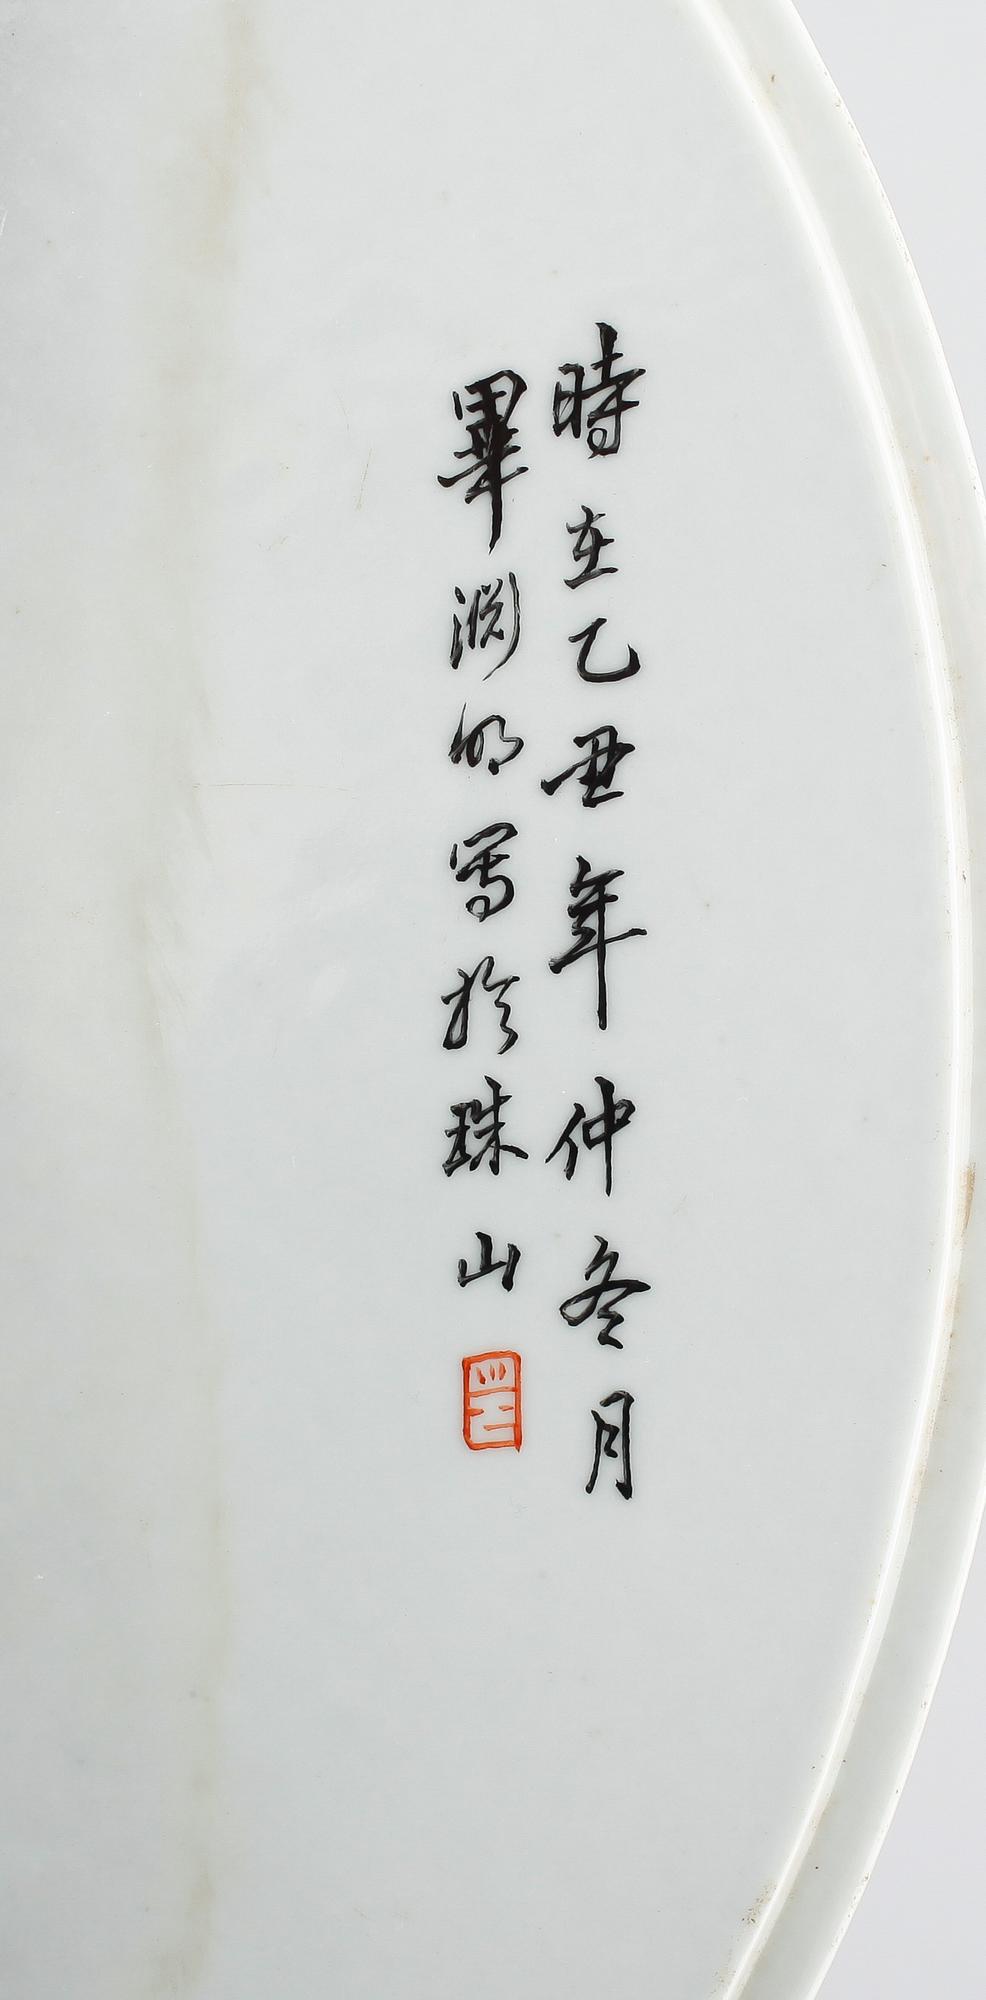 時在乙丑年仲冬月
畢淵明寫於珠山